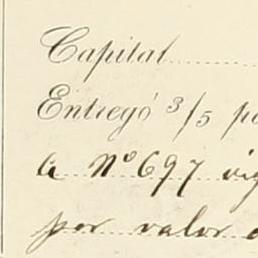 Capital
Entregó 3/5 p
a Nº 697 vig
por valor d